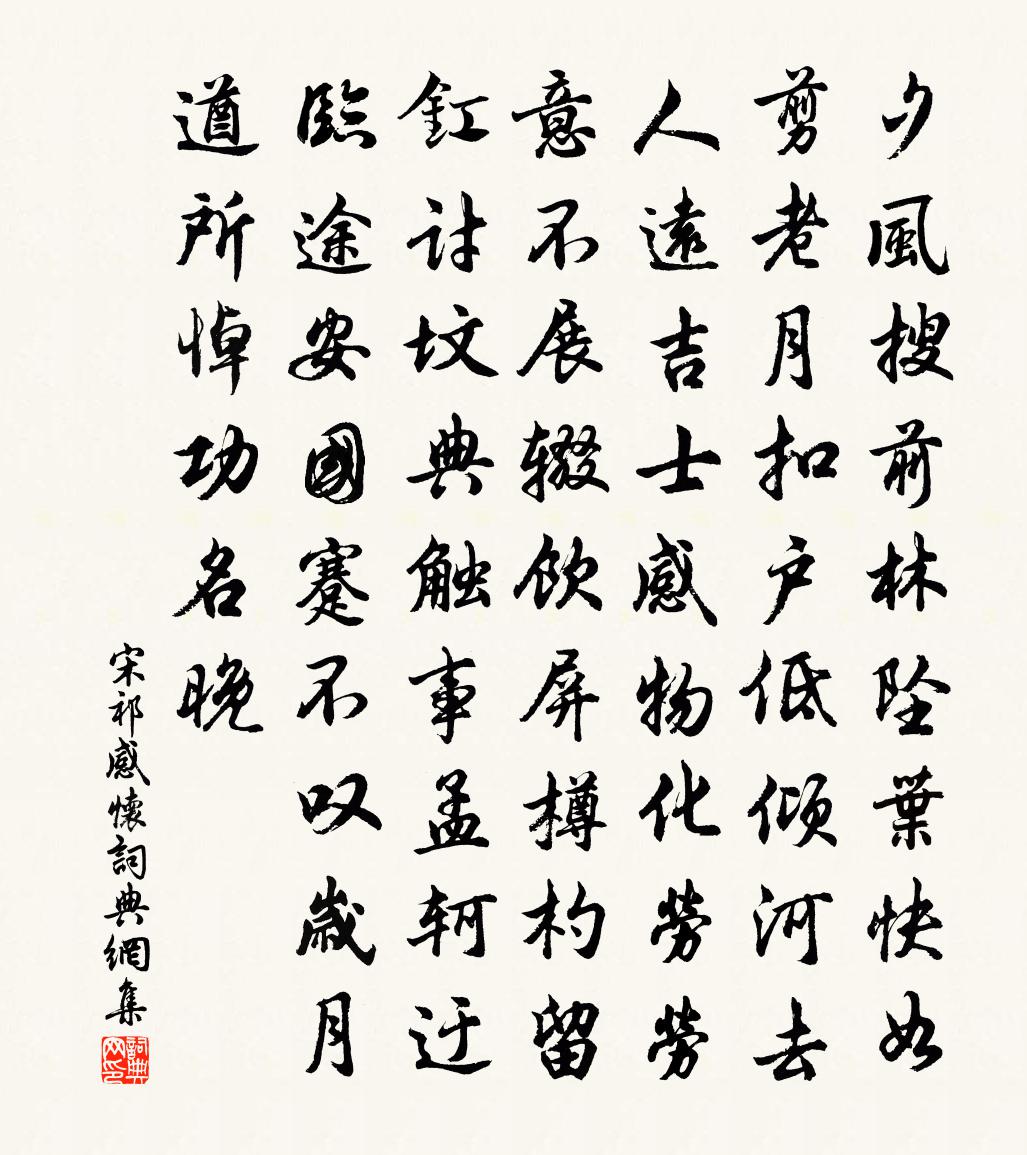 夕風搜前林坠葉快如
剪老月扣户低傾河去
人遠吉士感物化勞勞
意不展辍飲屏樽杓留
釭討坟典触事孟轲迂
臨途安國蹇不叹歲月
遒所悼功名晚
宋祁感懷詞典網集
詞典网印